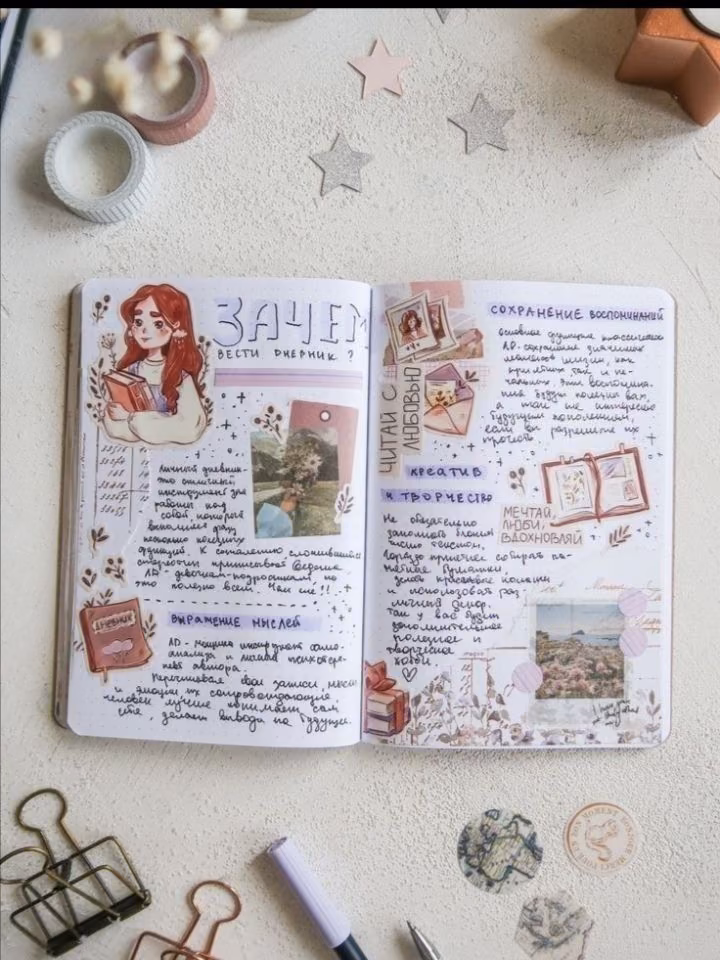 ЗАЧЕМ
ВЕСТИ ДНЕВНИК ?
Личный дневник-
это отличный
инструмент для
работы над
собой, который
выполняет сразу
несколько полезных
функций. К сожалению, сложившийся
стереотип приписывает ведение
ЛД девочкам-подросткам, но
это полезно всем. Чем же !!
ДНЕВНИК
ВЫРАЖЕНИЕ МЫСЛЕЙ
ЛД - мощный инструмент само-
анализа и личный психотера-
певт автора.
Перечитывая свои записи, мысли
и эмоции их сопровождающие
человек лучше понимает сам
себя, делает выводы на будущее.
ЧИТАЙ С
ЛЮБОВЬЮ
СОХРАНЕНИЕ ВОСПОМИНАНИЙ
основная функция классического
ЛД - сохранение значимых
жизни, как
приятных так и пе-
чальных. Эти воспомина-
ния будут полезна вам,
а так же интересно
будущим поколениям,
если вы разрешите их
прочесть
КРЕАТИВ
И ТВОРЧЕСТВО
Не обязательно
заполнять бланки
чисто текстом,
Гораздо приятнее собирать па-
мятные бумажки
делать красивые коллажи
и использовать раз
личный декор.
Так у вас будет
дополнительное
полезное и
творческое
хобби.
МЕЧТАЙ,
ЛЮБИ,
ВДОХНОВЛЯЙ